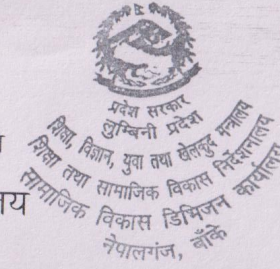 प्रदेश सरकार
लुम्बिनी प्रदेश
शिक्षा, विज्ञान, युवा तथा खेलकुद मन्त्रालय
शिक्षा तथा सामाजिक विकास निर्देशनालय
सामाजिक विकास डिभिजन कार्यालय
नेपालगंज, बाँके